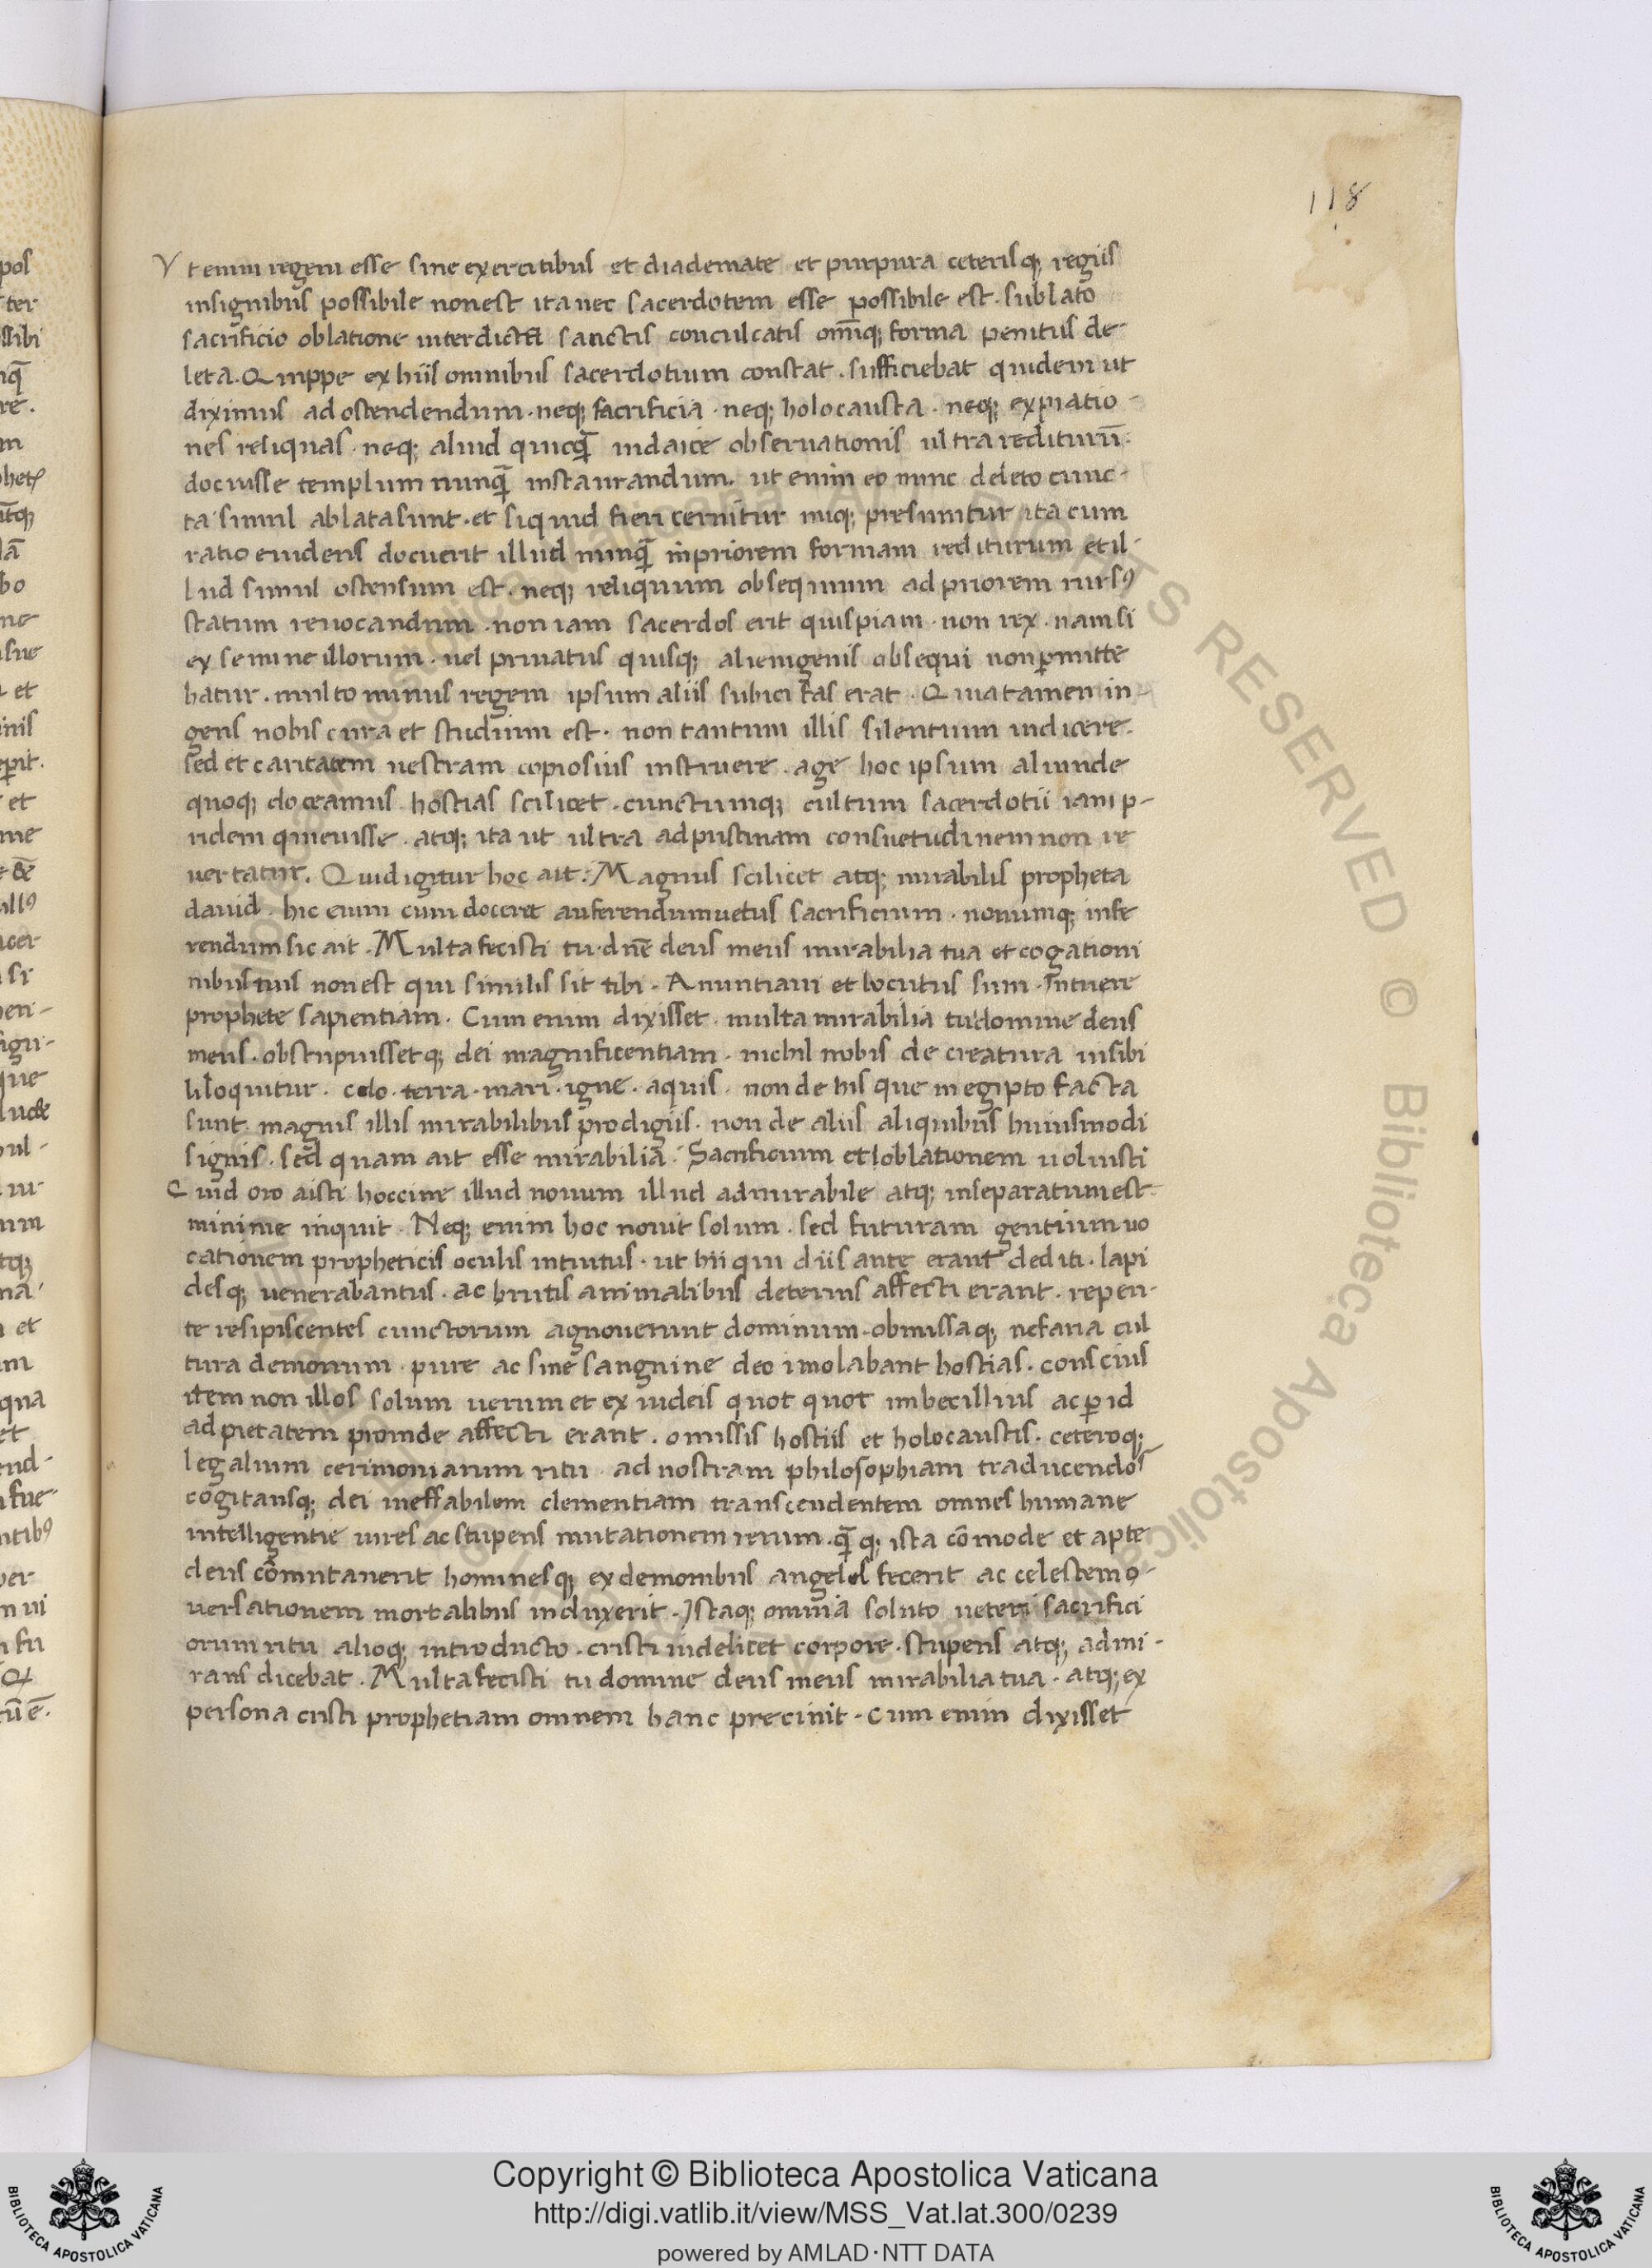 118
Vt enim regem esse sine exercitibus et diademate et purpura ceterisq; regiis
insignibus possibile non est ita nec sacerdotem esse possibile est. sublato
sacrificio oblatione interdicta sanctis conculcatis om̄iq; forma penitus de-
leta. Quippe ex hiis omnibus sacerdotium constat. sufficiebat quidem ut
diximus ad ostendendum. neq; sacrificia. neq; holocausta. neq; expiatio-
nes reliquas. neq; aliud quicq̄ iudaice obseruationis ultra rediturū.
docuisse templum nunq̄ instaurandum. ut enim eo nunc deleto cunc-
ta simul ablata sunt. et siquid fieri cernitur iniq; presumitur ita cum
ratio euidens docuerit illud nunq̄ in priorem formam rediturum et il-
lud simul ostensum est. neq; reliquum obsequium ad priorem rursꝰ
statum reuocandum. non iam sacerdos erit quispiam. non rex. nam si
ex semine illorum. uel priuatus quisq; alienigenis obsequi non ꝑmitte
batur. multo minus regem ipsum aliis subici fas erat. Quia tamen in-
gens nobis cura et studium est. non tantum illis silentium indicere.
sed et caritatem uestram copiosius instruere. age hoc ipsum aliunde
quoq; doceamus hostias scilicet. cunctumq; cultum sacerdotii iam p-
ridem quieuisse. atq; ita ut ultra ad pristinam consuetudinem non re
uertatur. Quid igitur hoc ait. Magnus scilicet atq; mirabilis propheta
dauid. hic enim cum doceret auferendum uetus sacrificium. nouumq; infe
rendum sic ait. Multa fecisti tu. dn̄e deus meus mirabilia tua et cogationi
nibus tuis non est qui similis sit tibi. Anuntiaui et locutus sum. Intuere
prophete sapientiam. Cum enim dixisset. multa mirabilia tu domine deus
meus. obstupuissetq; dei magnificentiam. nichil nobis de creatura uisibi
li loquitur. celo. terra. mari. igne. aquis. non de his que in egipto facta
sunt magnis illis mirabilibus prodigiis. non de aliis aliquibus huiusmodi
signis. sed quam ait esse mirabilia. Sacrificium et oblationem noluisti
Quid oro aisti hoccine illud nouum illud admirabile atq; inseparatum est.
minime inquit. Neq; enim hoc nouit solum. sed futuram gentium uo
cationem propheticis oculis intuitus. ut hii qui diis ante erant dediti. lapi
desq; uenerabantus. ac brutis animalibus deterius affecti erant. repen-
te resipiscentes cunctorum agnouerunt dominum. obmissaq; nefaria cul
tura demonum. pure ac sine sanguine deo imolabant hostias. conscius
item non illos solum uerum et ex iudeis quot quot imbecillius ac ꝑ id
ad pietatem proinde affecti erant. omissis hostiis et holocaustis. ceteroq;
legalium cerimoniarum ritu. ad nostram philosophiam traducendos
cogitansq; dei ineffabilem clementiam transcendentem omnes humane
intelligentie uires ac stupens mutationem rerum. q̄q; ista cōmode et apte
deus cōmutauerit hominesq; ex demonibus angelos fecerit ac celestem ꝯ-
uersationem mortalibus induxerit. Istaq; omnia soluto ueteri sacrifici
orum ritu alioq; introducto. cristi uidelicet corpore. stupens atq; admi-
rans dicebat. Multa fecisti tu domine deus meus mirabilia tua. atq; ex
persona cristi prophetiam omnem hanc precinit. Cum enim dixisset
Copyright © Biblioteca Apostolica Vaticana
http://digi.vatlib.it/view/MSS_Vat.lat.300/0239
powered by AMLAD·NTT DATA
BIBLIOTECA APOSTOLICA VATICANA
BIBLIOTECA APOSTOLICA VATICANA